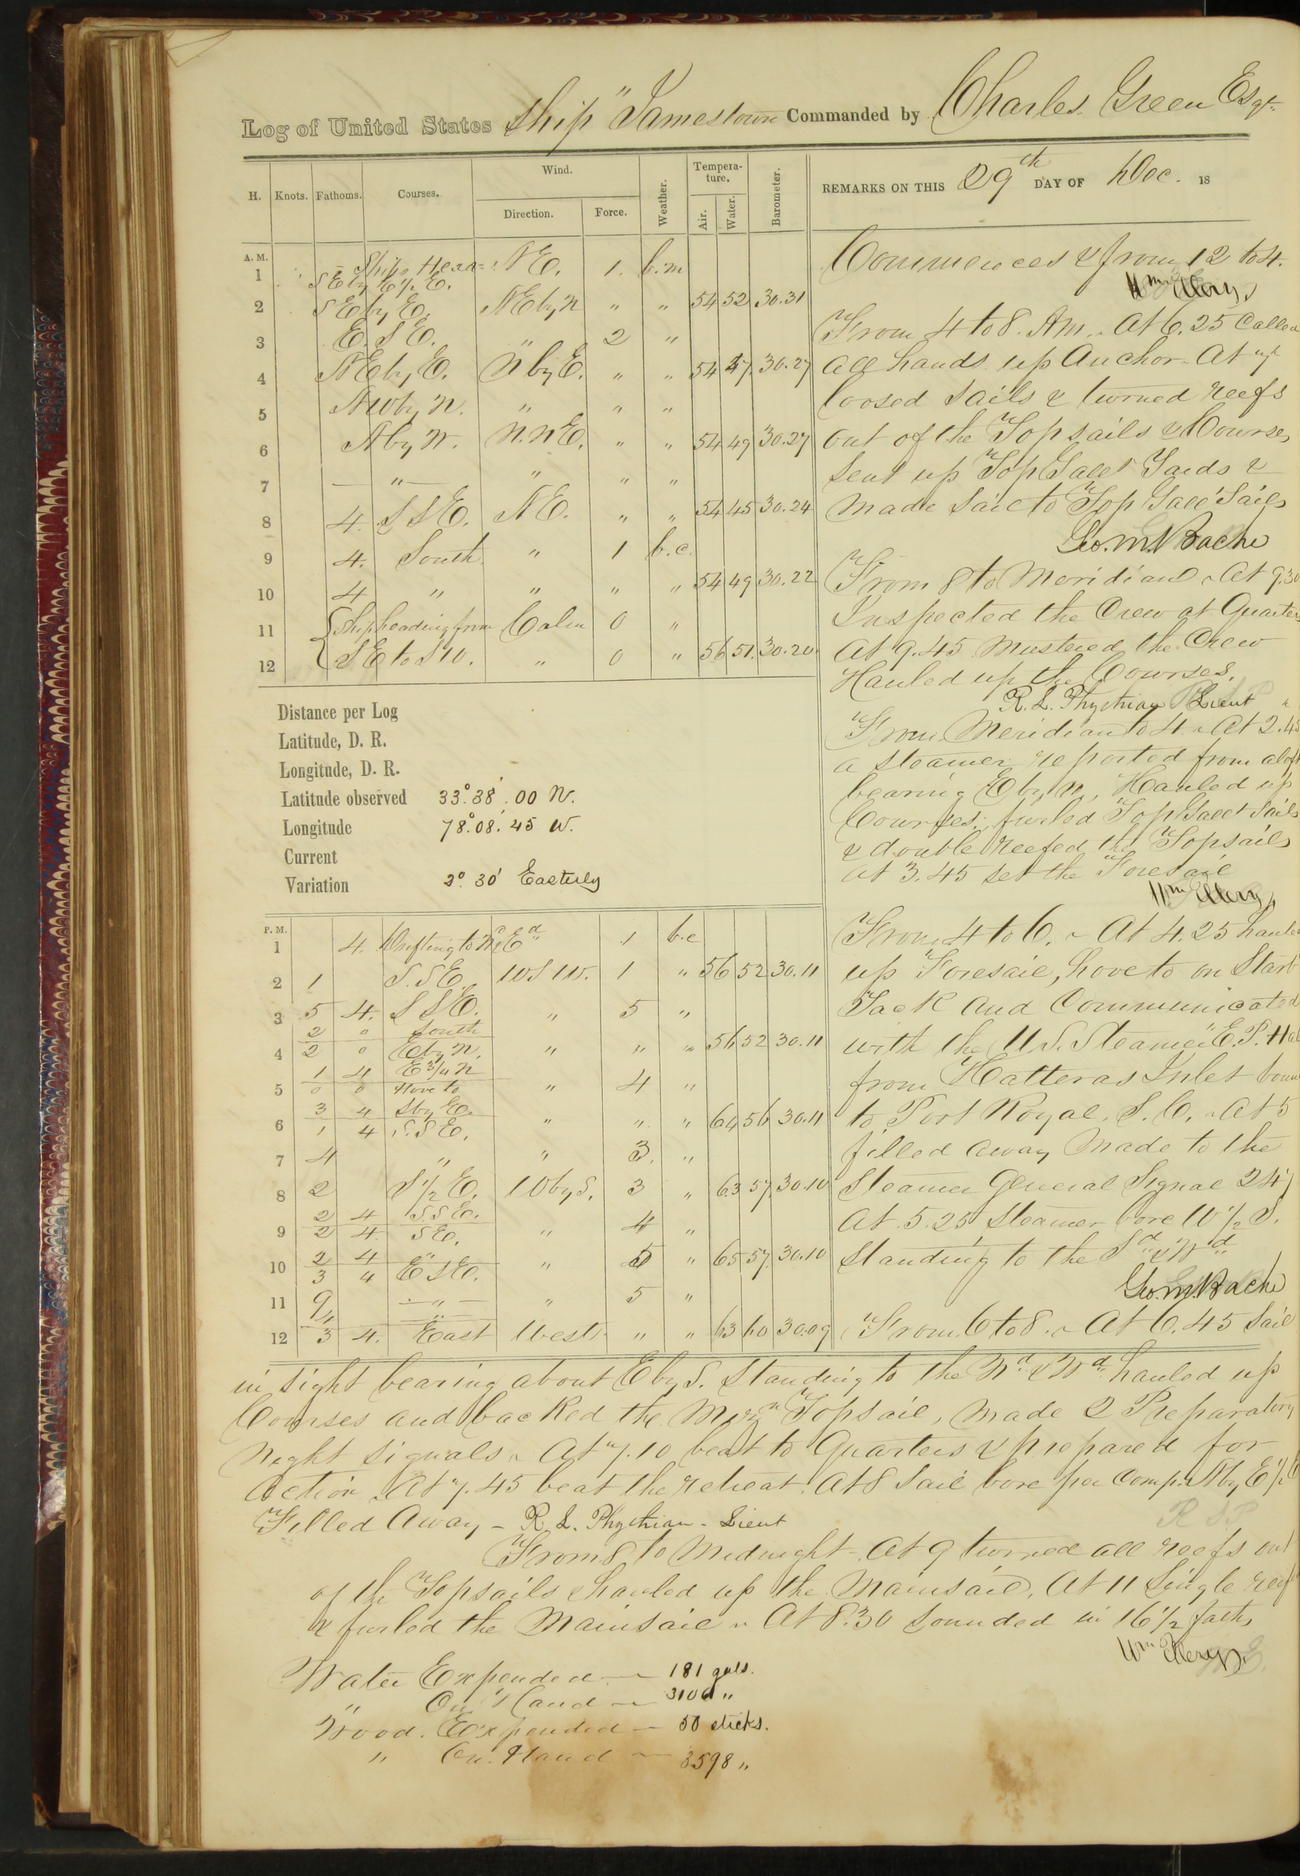 Log of United States Ship "Jamestown Commanded by Charles Green Esqr.
H. Knots. Fathoms. Courses. Wind. Direction. Force. Weather. Tempera-ture. Air. Water. Barometer. REMARKS ON THIS 29th DAY OF Dec. 18
A. M.
1 Ships Head S E by E ½ E. NE. 1. b.m
2 S E by E. NE by N " " 54 52 30.31
3 E. S E. " 2 "
4 NE by E. N by E. " " 54 47 30.27
5 NW by N. " " "
6 N by W. N.NE. " " 54 49 30.27
7 — " — " " "
8 4. S S E. NE. " " 54 45 30.24
9 4. South " 1 b.c.
10 4 " " " " 54 49 30.22
11 Ship heading from Calm 0 "
12 S E to S W. " 0 " 56 51. 30.20
Commences & from 12 to 4.
From 4 to 8. Am. At 6.25 Called
all hands up Anchor. At 7
loosed Sails & turned reefs
out of the Topsails & Courses,
Sent up Top Gall't Yards &
made Sail to Top Gall't Sails
Geo. M. Bache
From 8 to Meridian. At 9.30
Inspected the Crew at Quarters
At 9.45 Mustered the Crew
Hauled up the Courses.
R. L. Phythian Lieut
From Meridian to 4. At 2.45
a Steamer reported from aloft
bearing E by N, Hauled up
Courses, furled Top Gall't Sails
& double reefed the Topsails
at 3.45 set the Foresail
Distance per Log
Latitude, D. R.
Longitude, D. R.
Latitude observed 33°.38'.00 N.
Longitude 78°.08.45 W.
Current
Variation 2°.30' Easterly
P. M.
1 4. Drifting to Nd & Ed " 1 b.c
2 1 S.S E. W S W. 1 " 56 52 30.11
3 5 4. S S E. " 5 "
2 0 South
4 2 0 E by N. " " " 56 52 30.11
1 4 E ¾ N
5 0 0 Hove to " 4 "
3 4 S by E.
6 1 4 S.S E. " " " 64 56 30.11
7 4 " " 3. "
8 2 S ½ E. W by S. 3 " 63 57 30.10
2 4 S S E.
9 2 4 S E. " 4 "
2 4 "
10 3 4 E S E. " 5 " 65 57 30.10
11 9 4 — " — " 5 "
12 3 4. East West. " " 63 60 30.09
From 4 to 6. At 4.25 hauled
up Foresail, hove to on Starb
Tack and Communicated
with the U.S. Steamer "E. P. Hal
from Hatteras Inlet boun
to Port Royal, S. C. At 5
filled away Made to the
Steamer General Signal 247
At. 5.25 Steamer bore W ½ S.
Standing to the Sd & Wd
Geo. M. Bache
From 6 to 8. At 6.45 Sail
in sight bearing about E by S. Standing to the Nd & Wd hauled up
Courses and backed the Mizn Topsail, made 2 Preparatory
Night Signals. At 7.10 beat to Quarters & prepared for
Action. At 7.45 beat the retreat. At 8 Sail bore per Comp. N by E ½ E
Filled Away — R. L. Phythian - Lieut
From 8 to Midnight. At 9 turned all reefs out
of the Topsails & hauled up the Mainsail. At 11 Single reef
& furled the Mainsail. At 8.30 Sounded in 16 ½ faths
Water Expended — 181 gals.
" On Hand — 3106 "
Wood. Expended — 50 sticks.
" On Hand — 3598 "